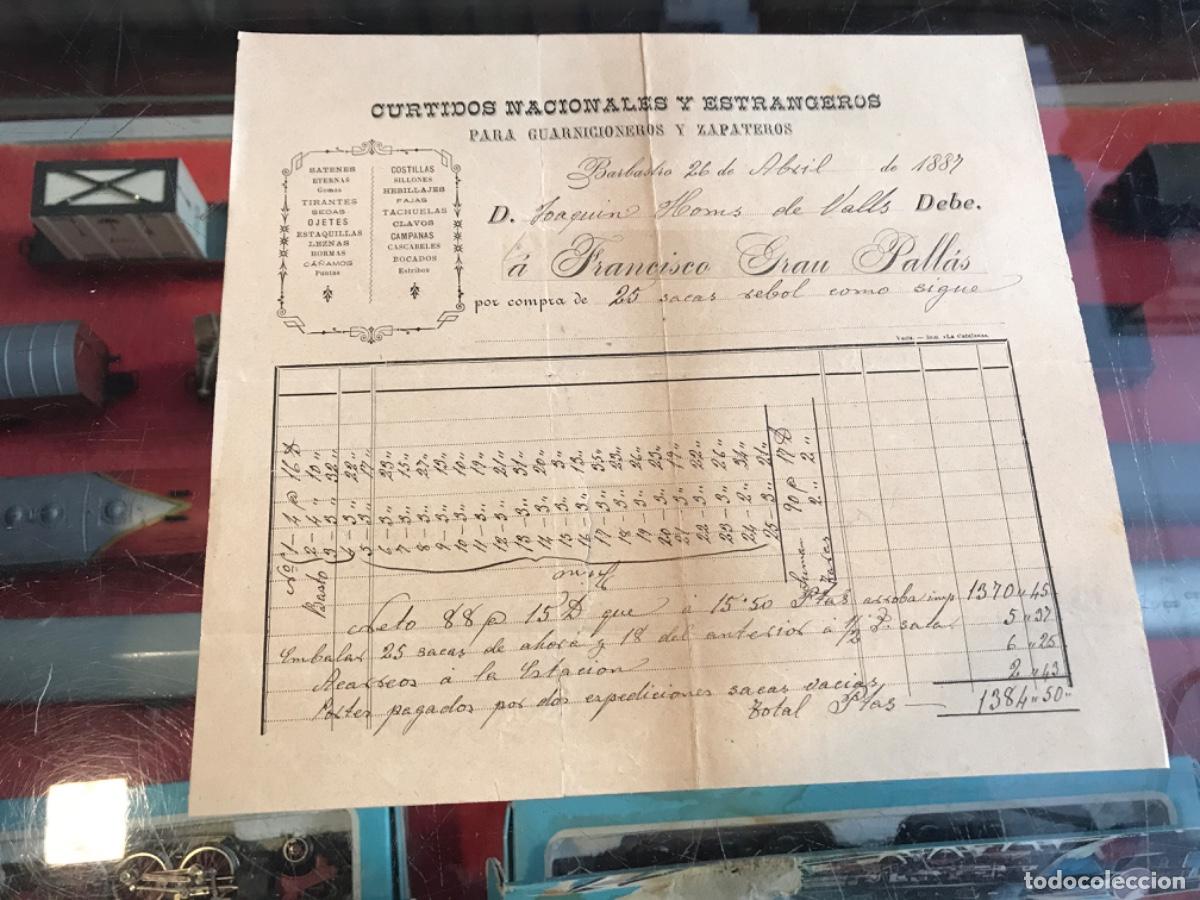 CURTIDOS NACIONALES Y ESTRANGEROS
PARA GUARNICIONEROS Y ZAPATEROS
BATENES
ETERNAS
Gomas
TIRANTES
SEDAS
OJETES
ESTAQUILLAS
LEZNAS
HORMAS
CÁÑAMOS
Puntas
COSTILLAS
SILLONES
HEBILLAJES
FAJAS
TACHUELAS
CLAVOS
CAMPANAS
CASCABELES
BOCADOS
Estribos
Barbastro 26 de Abril de 1887
D. Joaquin Homs de Valls Debe.
á Francisco Grau Pallás
por compra de 25 sacas rebol como sigue
Valls. — Imp. «La Catalana»
Nos. 1 - 4 @ 16 D
Basto 2 - 4 " 10 "
3 - 3 " 32 "
4 - 3 " 28 "
5 - 3 " 17 "
6 - 3 " 23 "
7 - 3 " 15 "
8 - 3 " 27 "
9 - 3 " 13 "
10 - 3 " 10 "
11 - 3 " 19 "
12 - 3 " 21 "
13 - 3 " 31 "
14 - 3 " 20 "
15 - 3 " 3 "
16 - 3 " 13 "
17 - 3 " 35 "
18 - 3 " 23 "
19 - 3 " 26 "
20 - 3 " 23 "
21 - 3 " 19 "
22 - 3 " 22 "
23 - 3 " 26 "
24 - 2 " 34 "
25 - 3 " 21 "
Suman 90 @ 17 D
Taras 2 " 2 "
Neto 88 @ 15 D que á 15'50 Ptas arroba imp 1370 " 45
Embalar 25 sacas de ahora y 18 del anterior á 1/2 saca 5 " 37
Acarreos á la Estacion 6 " 25
Portes pagados por dos expediciones sacas vacias 2 " 43
Total Ptas — 1384 " 50 "
todocoleccion